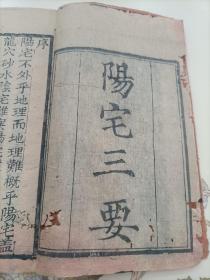 陽宅三要
序
陽宅不外乎地理而地理難概乎陽宅蓋
龍穴砂水陰宅